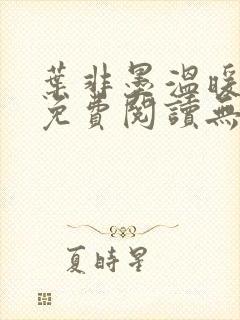 葉非墨溫暖
免費閱讀無
夏時星